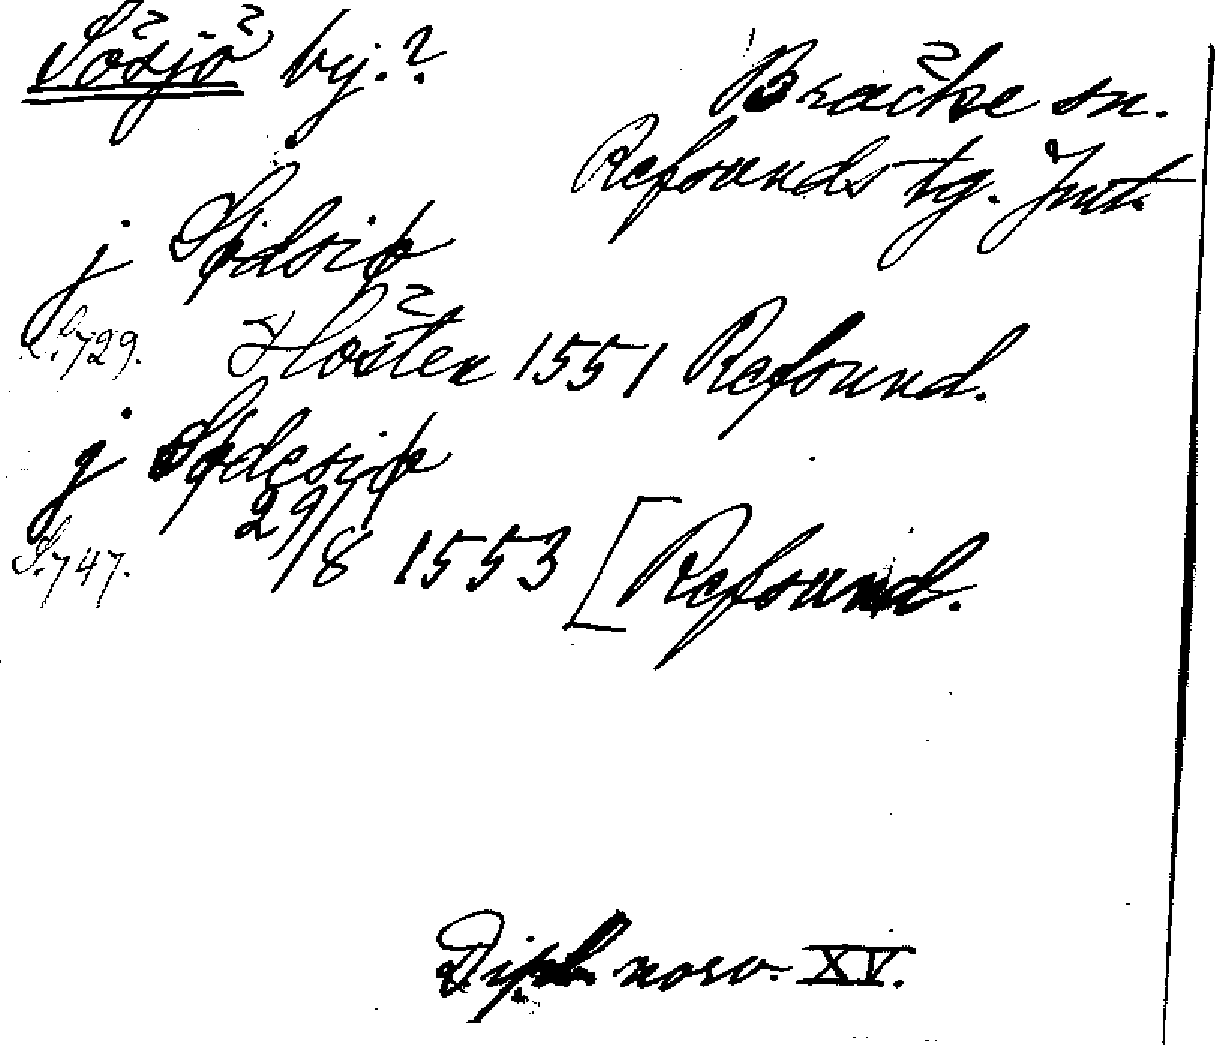 Sösjö by.?
Bräcke sn.
Refsunds tg. Jmt.
j Spdsiø
S. 729. Hösten 1551 Refsund.
j Spdesiø
S. 747. 29/8 1553 [Refsund.
Dipl. norv. XV.